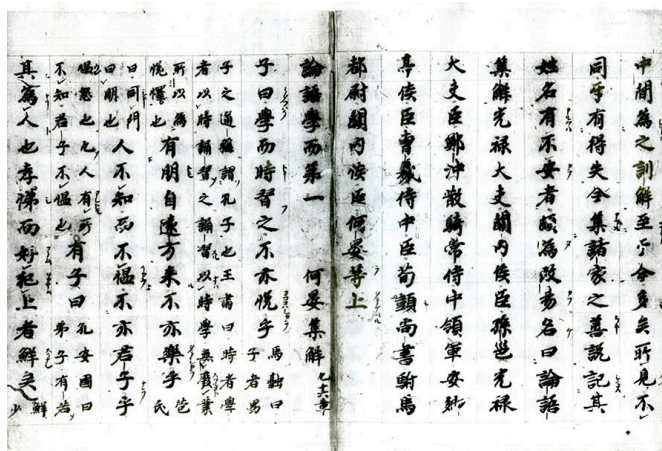 中間為之訓解至于今多矣所見不
同乎有得失今集諸家之善説記其
姓名有不安者頗為改易名曰論語
集解光禄大夫關内侯臣孫邕光禄
大夫臣鄭沖散騎常侍中領軍安鄉
亭侯臣曹羲侍中臣荀顗尚書駙馬
都尉關内侯臣何晏等上
論語學而第一 何晏集解 凡十六章
子曰學而時習之不亦悅乎 馬融曰
子者男
子之通稱謂孔子也王肅曰時者學
者以時誦習之誦習以時學無廢業
所以為
悅懌也
有朋自遠方来不亦樂乎 苞
氏
曰同門
曰朋也
人不知而不愠不亦君子乎
愠怒也凡人有所
不知君子不愠也
有子曰 孔安國曰
弟子有若
其為人也孝悌而好犯上者鮮矣 鮮
少